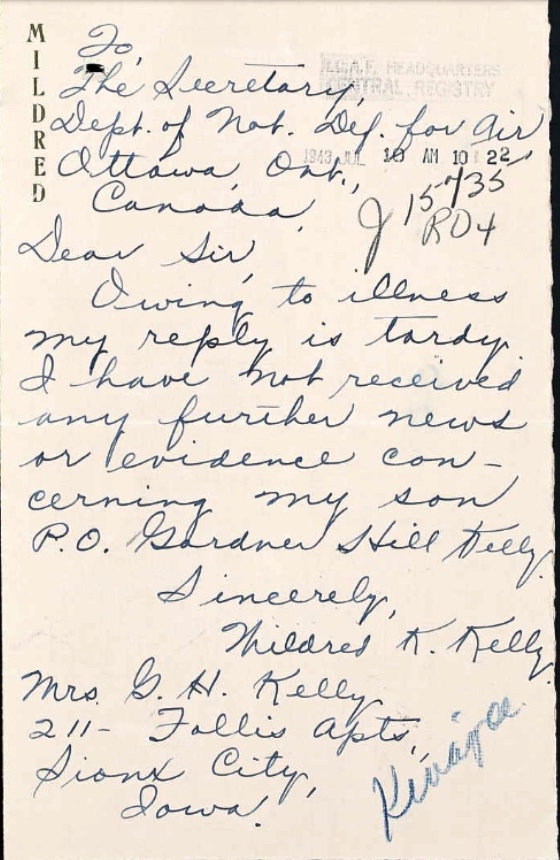 MILDRED
To
The Secretary,
Dept. of Nat. Def. for Air
Ottawa, Ont.,
Canada.
R.C.A.F. HEADQUARTERS
CENTRAL REGISTRY
1943 JUL 10 AM 10 22
J 15735
RO4
Dear Sir,
Owing to illness
my reply is tardy.
I have not received
any further news
or evidence con-
cerning my son
P.O. Gardner Hill Kelly.
Sincerely,
Mildred K. Kelly.
Mrs. G. H. Kelly
211- Follis Apts.,
Sioux City,
Iowa.